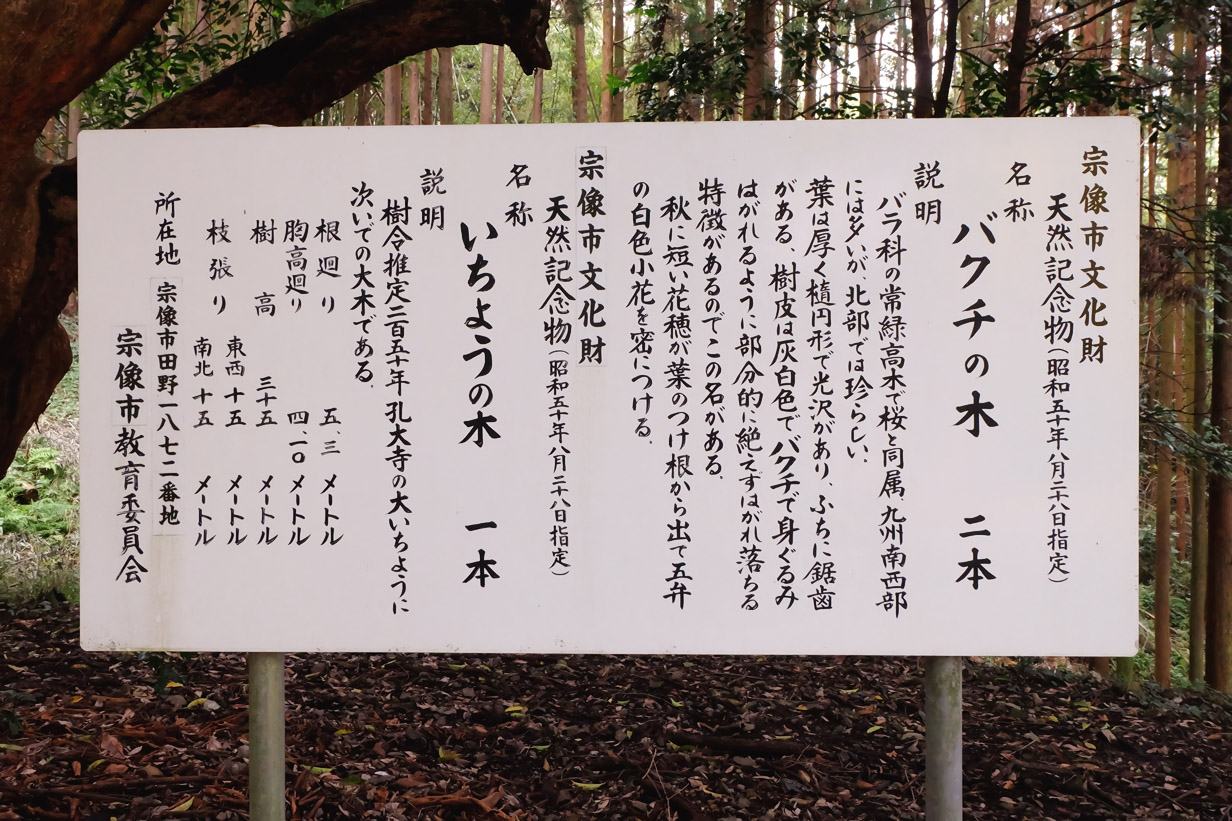 宗像市文化財
天然記念物(昭和五十年八月二十八日指定)
名称
バクチの木 二本
説明
バラ科の常緑高木で桜と同属、九州南西部
には多いが、北部では珍らしい。
葉は厚く楕円形で光沢があり、ふちに鋸歯
がある、樹皮は灰白色でバクチで身ぐるみ
はがれるように部分的に絶えずはがれ落ちる
特徴があるのでこの名がある。
秋に短い花穂が葉のつけ根から出て五弁
の白色小花を密につける。
宗像市文化財
天然記念物(昭和五十年八月二十八日指定)
名称
いちようの木 一本
説明
樹令推定二百五十年孔大寺の大いちように
次いでの大木である。
根廻り 五、三 メートル
胸高廻り 四、一〇 メートル
樹高 三十五 メートル
枝張り 東西 十五 メートル
南北 十五 メートル
所在地 宗像市田野一八七二番地
宗像市教育委員会